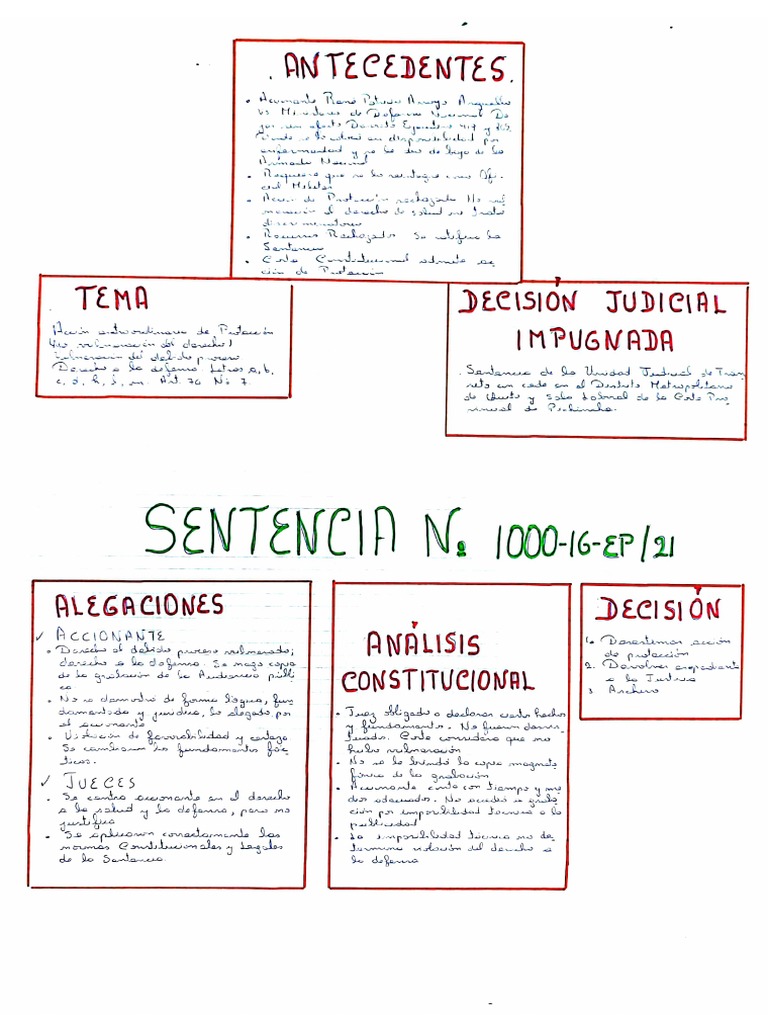 ANTECEDENTES.
• Accionante Rene Patricio Arroyo Arguello
vs Ministerio de Defensa Nacional De
jar sin efecto Decreto Ejecutivo y
se le coloca en disponibilidad por
enfermedad y se le da de baja de la
Armada Nacional
• Requiere que se le reintegre como Ofi
cial Militar
• Acción de Protección rechazada No vul
neración al derecho de salud ni trato
discriminatorio
• Recurso Rechazado Se ratifica la
Sentencia
• Corte Constitucional admite ac
ción de Protección
TEMA
Acción extraordinaria de Protección
vulneración del derecho /
vulneración del debido proceso
Derecho a la defensa Letras a, b,
c, d, h, j, m. Art. 76 N: 7.
DECISIÓN JUDICIAL
IMPUGNADA
. Sentencia de la Unidad Judicial de Tran
sito con sede en el Distrito Metropolitano
de Quito y Sala Laboral de la Corte Pro
vincial de Pichincha.
SENTENCIA No 1000-16-EP/21
ALEGACIONES
✓ ACCIONANTE
• Derecho al debido proceso vulnerado;
derecho a la defensa. Se nego copia
de la grabación de la Audiencia públi
ca
• No se demostro de forma lógica, fun
damentada y juridica, lo alegado por
el accionante
• Violación de favorabilidad y
Se cambiaron los fundamentos fác
ticos.
✓ JUECES
• Se centra accionante en el derecho
a la salud y la defensa, pero no
justifica
• Se aplicaron correctamente las
normas Constitucionales y Legales
de la Sentencia.
ANÁLISIS
CONSTITUCIONAL
• Juez obligado a declarar cierto hechos
y fundamento. No fueron desvir
tuados. Corte considera que no
hubo vulneración
• No se le brindó la copia magneto
fónica de la grabación
• Accionante conto con tiempo y me
dios adecuados. No accedio a graba
ción por imposibilidad tecnica a la
publicidad
• La imposibilidad técnica no de
termina violación del derecho a
la defensa
DECISIÓN
1. Desestimar acción
de protección
2. Devolver expediente
a la Justicia
3. Archivo